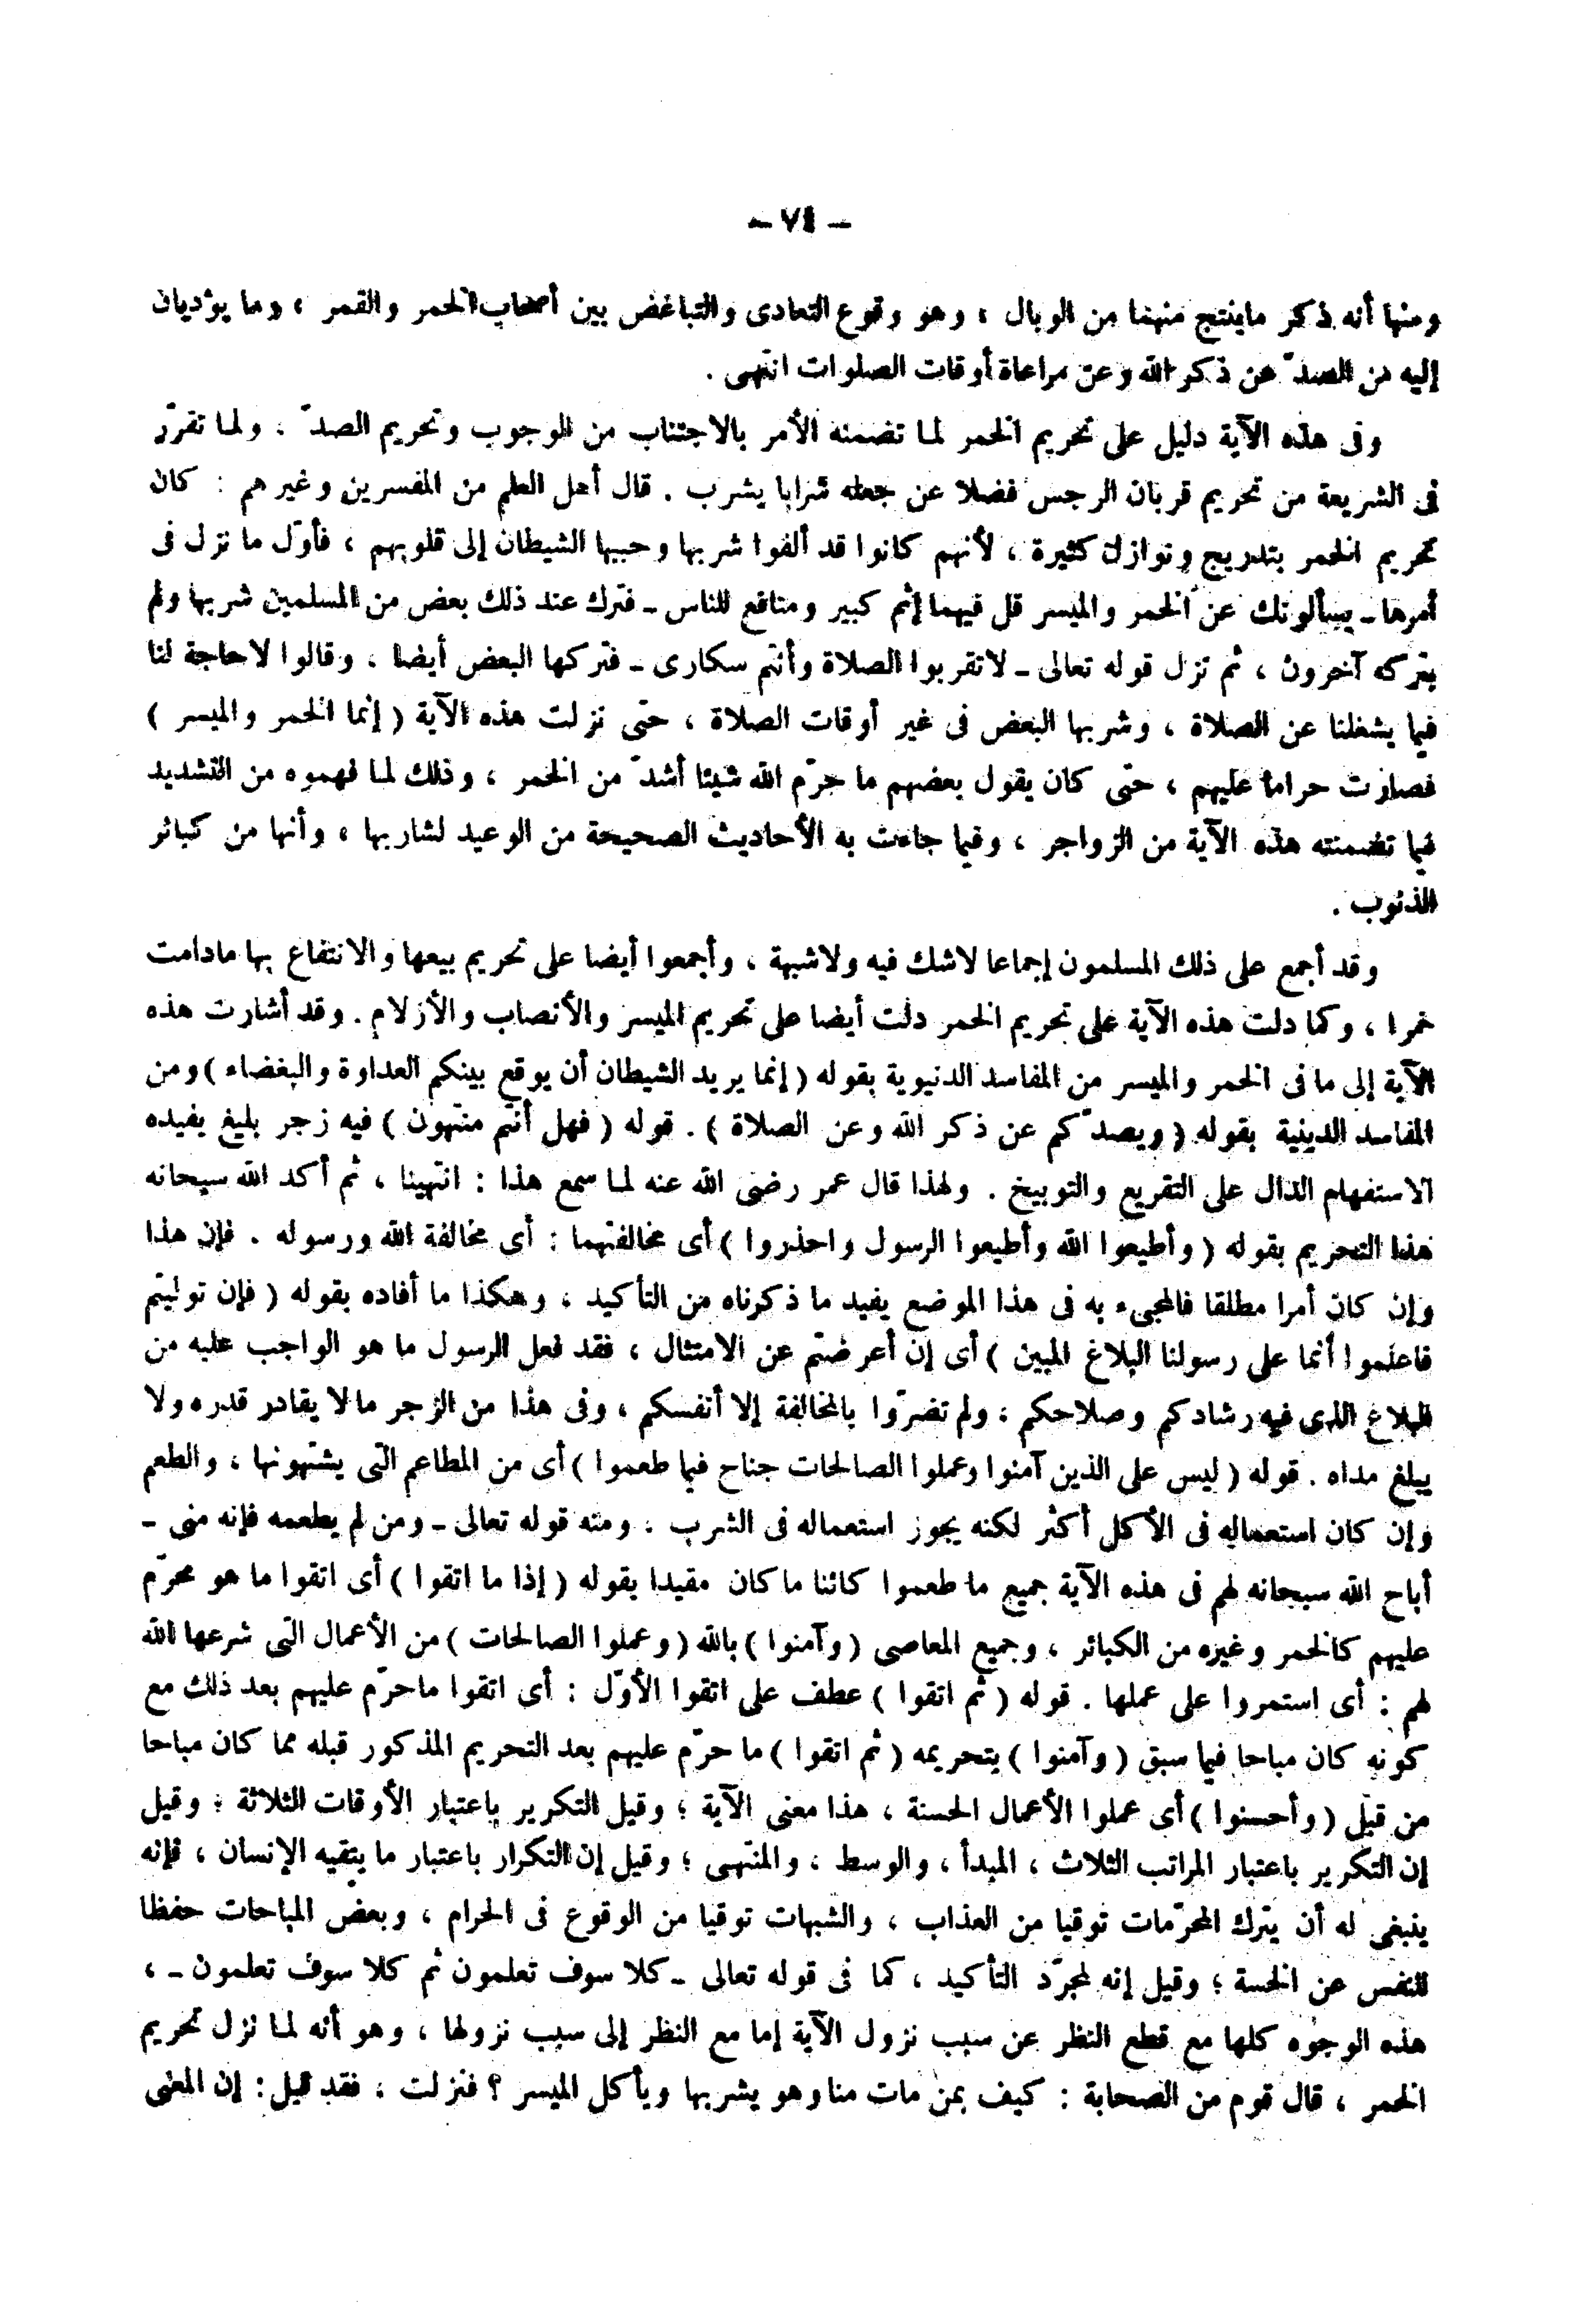 – ٧٤ –
ومنها أنه ذكر ماينتج منهما من الوبال ، وهو وقوع التعادى والتباغض بين أصحاب الخمر والقمر ، وما يؤديان
إليه من الصدّ عن ذكر الله وعن مراعاة أوقات الصلوات انتهى .
وفى هذه الآية دليل على تحريم الخمر لما تضمنه الأمر بالاجتناب من الوجوب وتحريم الصدّ ، ولما تقرّر
فى الشريعة من تحريم قربان الرجس فضلا عن جعله شرابا يشرب . قال أهل العلم من المفسرين وغيرهم : كان
تحريم الخمر بتدريج ونوازل كثيرة ، لأنهم كانوا قد ألفوا شربها وحببها الشيطان إلى قلوبهم ، فأوّل ما نزل فى
أمرها ـ يسألونك عن الخمر والميسر قل فيهما إثم كبير ومنافع للناس ـ فترك عند ذلك بعض من المسلمين شربها ولم
يتركه آخرون ، ثم نزل قوله تعالى ـ لاتقربوا الصلاة وأنتم سكارى ـ فتركها البعض أيضا ، وقالوا لاحاجة لنا
فيما يشغلنا عن الصلاة ، وشربها البعض فى غير أوقات الصلاة ، حتى نزلت هذه الآية ( إنما الخمر والميسر )
فصارت حراما عليهم ، حتى كان يقول بعضهم ما حرّم الله شيئا أشدّ من الخمر ، وذلك لما فهموه من التشديد
فيما تضمنته هذه الآية من الزواجر ، وفيما جاءت به الأحاديث الصحيحة من الوعيد لشاربها ، وأنها من كبائر
الذنوب .
وقد أجمع على ذلك المسلمون إجماعا لاشك فيه ولاشبهة ، وأجمعوا أيضا على تحريم بيعها والانتفاع بها مادامت
خمرا ، وكما دلت هذه الآية على تحريم الخمر دلت أيضا على تحريم الميسر والأنصاب والأزلام . وقد أشارت هذه
الآية إلى ما فى الخمر والميسر من المفاسد الدنيوية بقوله ( إنما يريد الشيطان أن يوقع بينكم العداوة والبغضاء ) ومن
المفاسد الدينية بقوله ( ويصدّكم عن ذكر الله وعن الصلاة ) . قوله ( فهل أنتم منتهون ) فيه زجر بليغ يفيده
الاستفهام الدال على التقريع والتوبيخ . ولهذا قال عمر رضى الله عنه لما سمع هذا : انتهينا ، ثم أكد الله سبحانه
هذا التحريم بقوله ( وأطيعوا الله وأطيعوا الرسول واحذروا ) أى مخالفتهما : أى مخالفة الله ورسوله . فإن هذا
وإن كان أمرا مطلقا فالمجىء به فى هذا الموضع يفيد ما ذكرناه من التأكيد ، وهكذا ما أفاده بقوله ( فإن توليتم
فاعلموا أنما على رسولنا البلاغ المبين ) أى إن أعرضتم عن الامتثال ، فقد فعل الرسول ما هو الواجب عليه من
البلاغ الذى فيه رشادكم وصلاحكم ، ولم تضرّوا بالمخالفة إلا أنفسكم ، وفى هذا من الزجر مالا يقادر قدره ولا
يبلغ مداه . قوله ( ليس على الذين آمنوا وعملوا الصالحات جناح فيما طعموا ) أى من المطاعم التى يشتهونها ، والطعم
وإن كان استعماله فى الأكل أكثر لكنه يجوز استعماله فى الشرب ، ومنه قوله تعالى ـ ومن لم يطعمه فإنه منى ـ
أباح الله سبحانه لهم فى هذه الآية جميع ما طعموا كائنا ما كان مقيدا بقوله ( إذا ما اتقوا ) أى اتقوا ما هو محرّم
عليهم كالخمر وغيره من الكبائر ، وجميع المعاصى ( وآمنوا ) بالله ( وعملوا الصالحات ) من الأعمال التى شرعها الله
لهم : أى استمروا على عملها . قوله ( ثم اتقوا ) عطف على اتقوا الأوّل : أى اتقوا ماحرّم عليهم بعد ذلك مع
كونه كان مباحا فيما سبق ( وآمنوا ) بتحريمه ( ثم اتقوا ) ما حرّم عليهم بعد التحريم المذكور قبله مما كان مباحا
من قبل ( وأحسنوا ) أى عملوا الأعمال الحسنة ، هذا معنى الآية ؛ وقيل التكرير باعتبار الأوقات الثلاثة ؛ وقيل
إن التكرير باعتبار المراتب الثلاث ، المبدأ ، والوسط ، والمنتهى ؛ وقيل إن التكرار باعتبار ما يتقيه الإنسان ، فإنه
ينبغى له أن يترك المحرّمات توقيا من العذاب ، والشبهات توقيا من الوقوع فى الحرام ، وبعض المباحات حفظا
للنفس عن الخسة ؛ وقيل إنه لمجرّد التأكيد ، كما فى قوله تعالى ـ كلا سوف تعلمون ثم كلا سوف تعلمون ـ ،
هذه الوجوه كلها مع قطع النظر عن سبب نزول الآية إما مع النظر إلى سبب نزولها ، وهو أنه لما نزل تحريم
الخمر ، قال قوم من الصحابة : كيف بمن مات منا وهو يشربها ويأكل الميسر ؟ فنزلت ، فقد قيل : إن المعنى